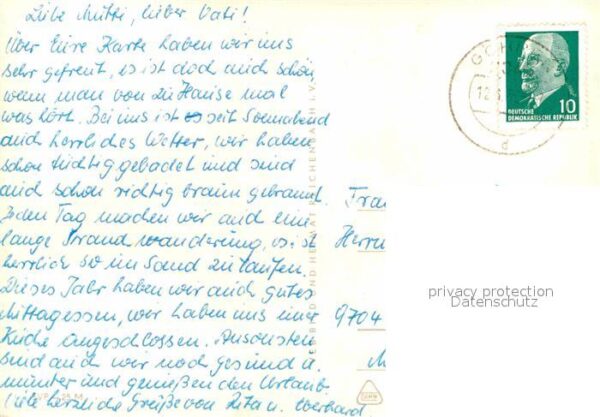 Liebe Mutti, lieber Vati!
Über Eure Karte haben wir uns
sehr gefreut, es ist doch auch schön,
wenn man von zu Hause mal
was hört. Bei uns ist seit Sonnabend
auch herrliches Wetter, wir haben
schon tüchtig gebadet und sind
auch schon richtig braun gebrannt.
Jeden Tag machen wir auch eine
lange Strandwanderung, es ist
herrlich so im Sand zu laufen.
Dieses Jahr haben wir auch gutes
Mittagessen, wir haben uns einer
Küche angeschlossen. Ansonsten
sind auch wir noch gesund u.
munter und genießen den Urlaub
Viele herzliche Grüße von Rita u. Eberhard
DEUTSCHE
DEMOKRATISCHE REPUBLIK
10
d
Herrn
9704
privacy protection
Datenschutz